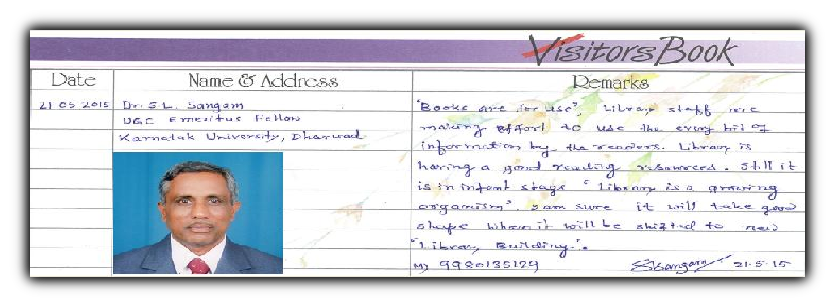 Visitors Book
Date Name & Address Remarks
21 05 2015 Dr. S.L. Sangam
UGC Emeritus Fellow
Karnatak University, Dharwad
"Books are for use", Library staff are
making effort to use the every bit of
information by the readers. Library is
having a good reading resources. Still it
is in infant stage "Library is a growing
organism". I am sure it will take good
shape when it will be shifted to new
"Library Building".
9980135129 SLSangam 21-5-15